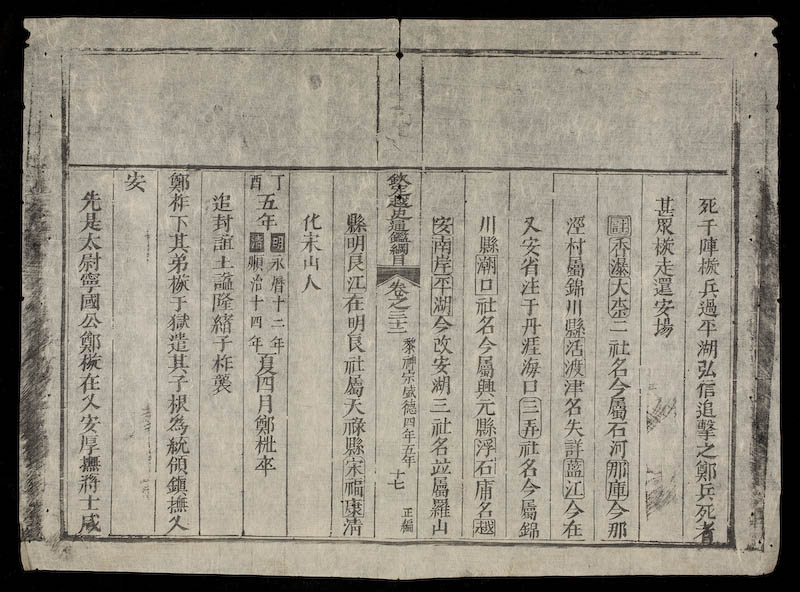 死千陣橃兵過平湖弘信追擊之鄭兵死者
甚眾橃走還安場
註香瀑大柰二社名今屬石河那庫今那
涇村屬錦川縣活渡津名失詳藍江今在
乂安省注于丹涯海口三弄社名今屬錦
川縣潮口社名今屬興元縣浮石庸名越
安南岸平湖今改安湖三社名並屬羅山
欽定越史通鑑綱目 卷之三十二 黎神宗盛德四年五年 十七 正編
縣明良江在明良社屬天祿縣宋福康清
化末山人
丁酉五年明永曆十一年清順治十四年夏四月鄭梉卒
追封誼王謚隆緒子柞襲
鄭柞下其弟橃于獄遣其子根為統領鎮撫乂
安
先是太尉寧國公鄭橃在乂安厚撫將士咸